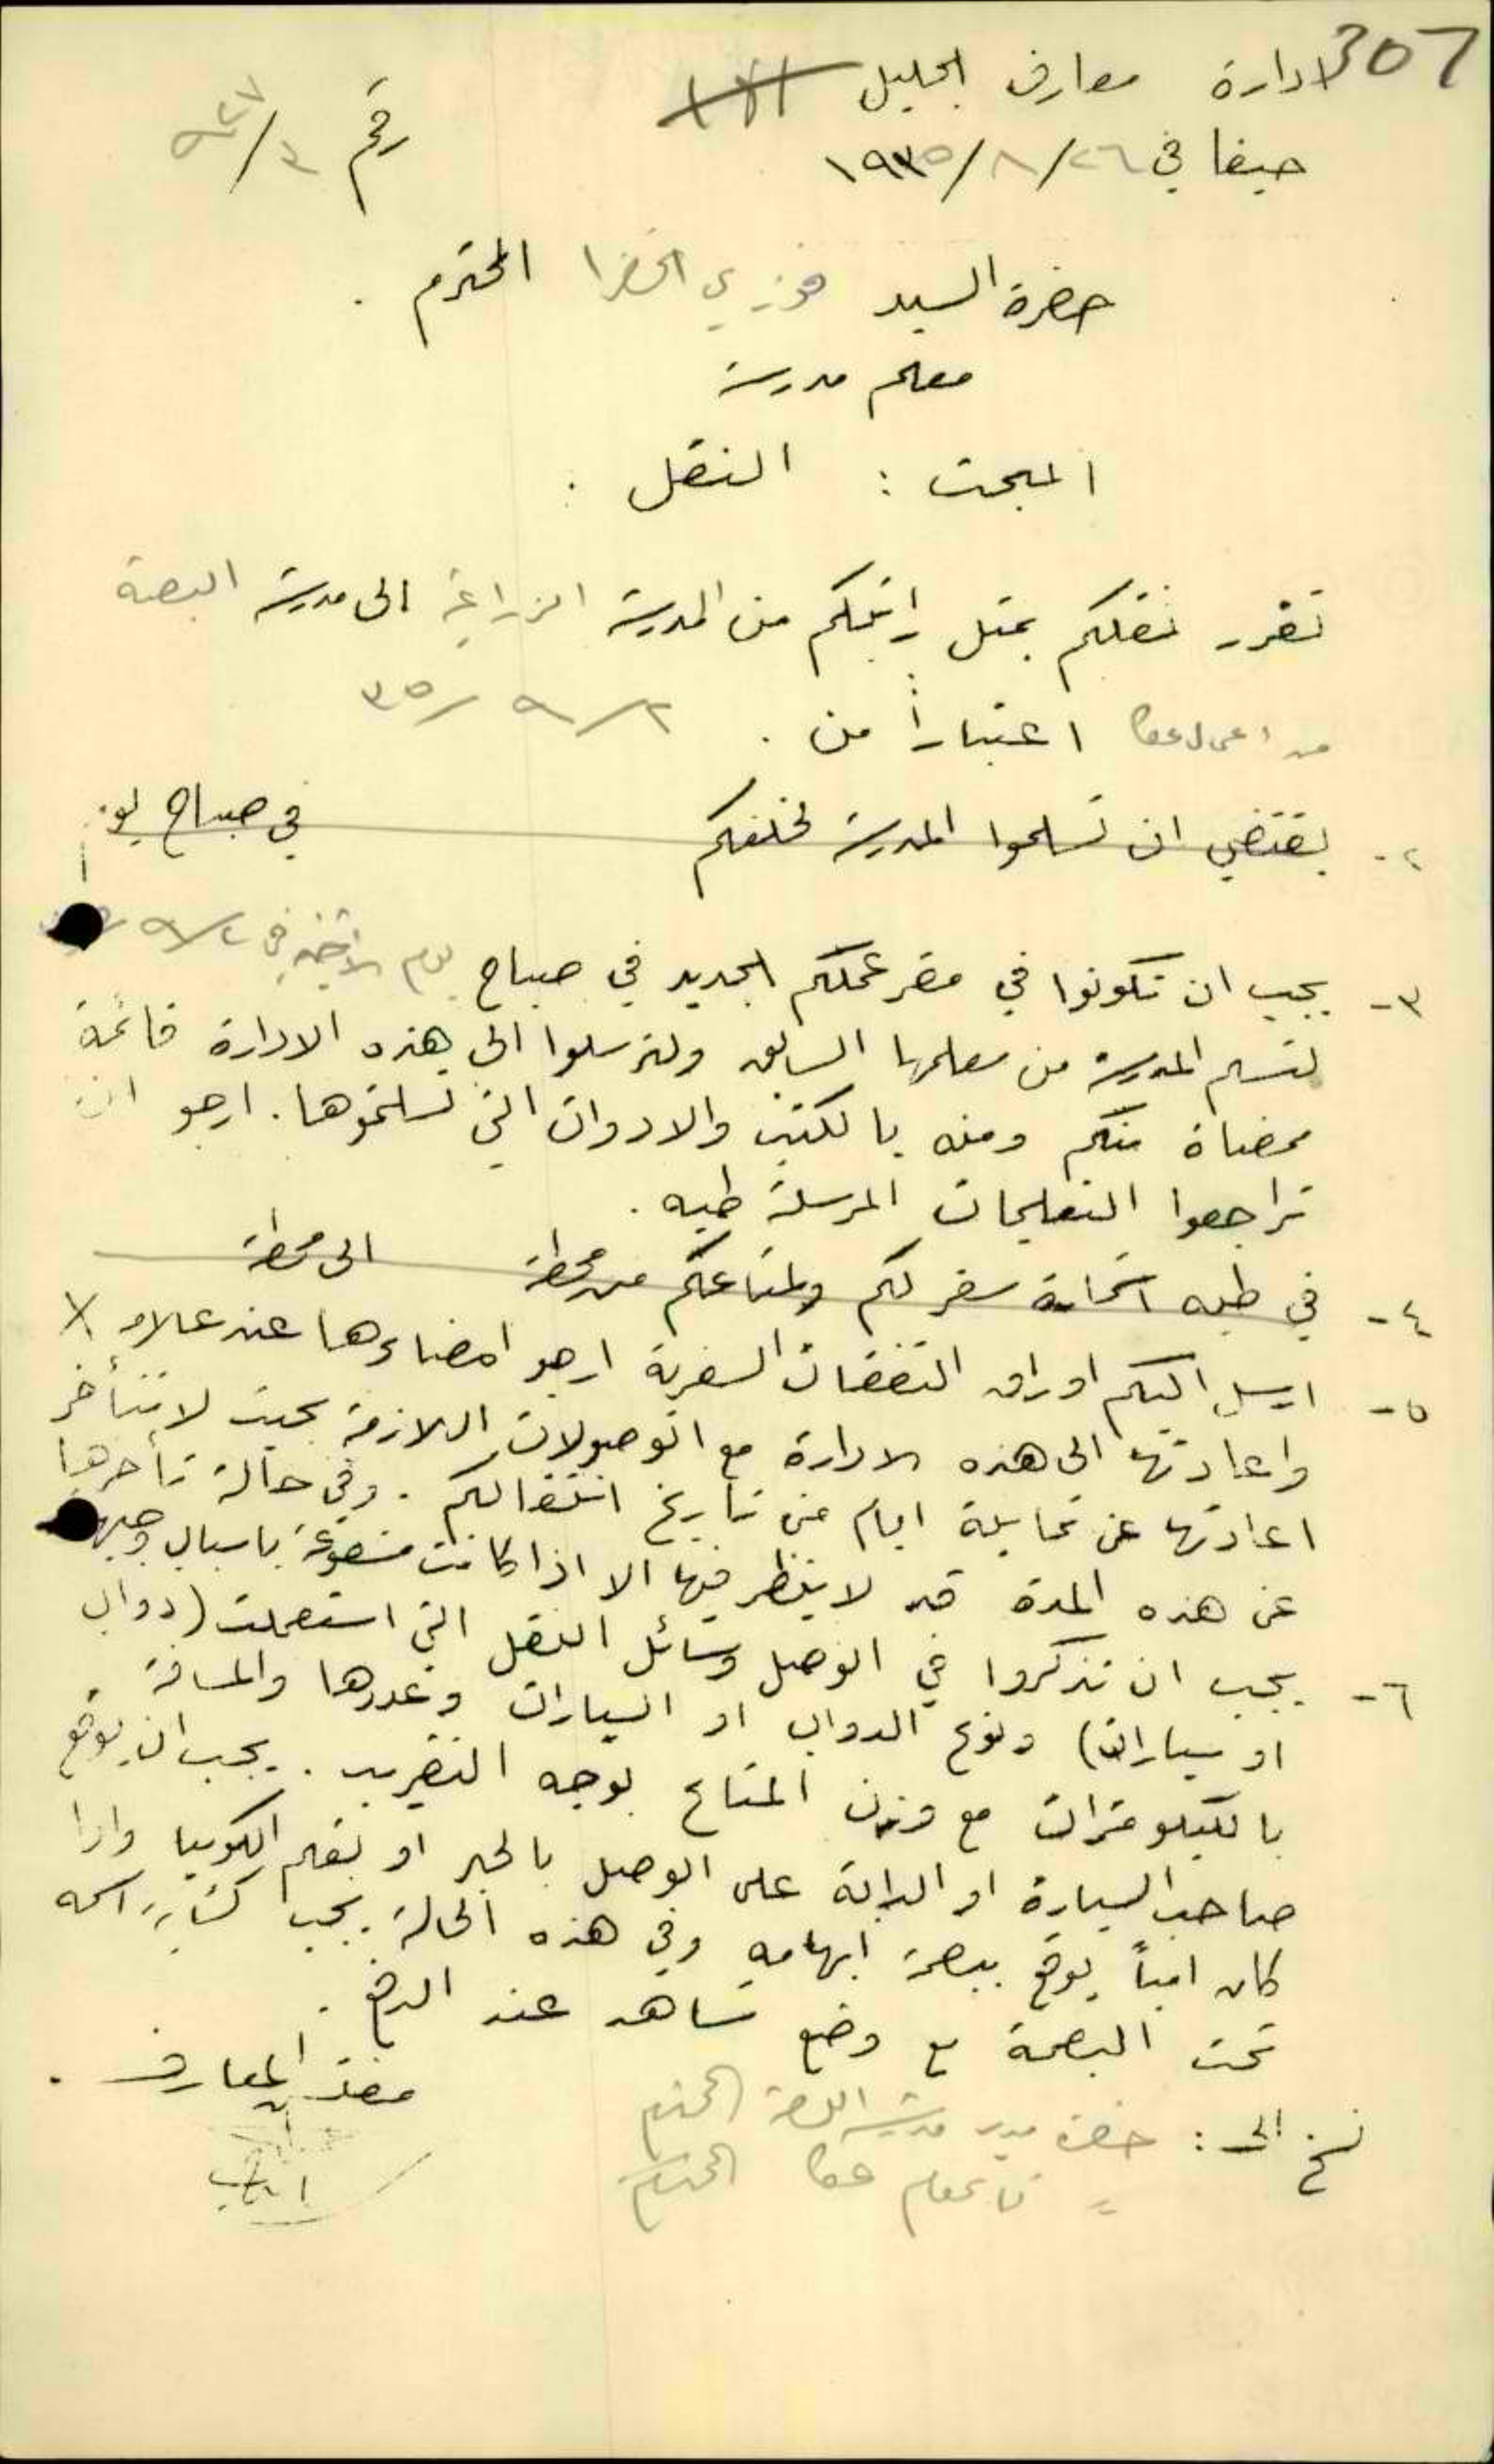 307
ادارة معارف الجليل
حيفا في ٢٦/٨/١٩٣٥ رقم
حضرة السيد فوزي الخضرا المحترم .
معلم مدرسة
المبحث : النقل .
تقرر نقلكم بمثل راتبكم من المدرسة الزراعية الى مدرسة البصة
من اعمال عكا اعتباراً من . ٢/٩/٣٥
٢- يقتضي ان تسلموا المدرسة لخلفكم في صباح يوم
٣- يجب ان تكونوا في مقر عملكم الجديد في صباح يوم الاثنين في ٢/٩
لتسلم المدرسة من معلمها السابق ولترسلوا الى هذه الادارة قائمة
ممضاة منكم ومنه بالكتب والادوات التي تسلمتموها . ارجو ان
تراجعوا التعليمات المرسلة طيه .
٤- في طيه استمارة سفر لكم ولمتاعكم من محطة الى محطة
٥- ارسل اليكم اوراق النفقات السفرية ارجو امضاءها عند علامة X
واعادتها الى هذه الادارة مع الوصولات اللازمة بحيث لا تتأخر
اعادتها عن ثمانية ايام من تاريخ انتقالكم . وفي حالة تأخرها
عن هذه المدة قد لا ينظر فيها الا اذا كانت مشفوعة باسباب وجيهة
٦- يجب ان تذكروا في الوصل وسائل النقل التي استعملت (دواب
او سيارات) ونوع الدواب او السيارات وعددها والمسافة
بالكيلومترات مع وزن المتاع بوجه التقريب . يجب ان يوقع
صاحب السيارة او الدابة على الوصل بالحبر او بقلم الكوبيا واذا
كان امياً يوقع ببصمة ابهامه وفي هذه الحالة يجب كتابة اسمه
تحت البصمة مع وضع شاهد عند الدفع .
مفتش المعارف .
نسخ الى : حضرة مدير مدرسة البصة المحترم
= قائمقام عكا المحترم